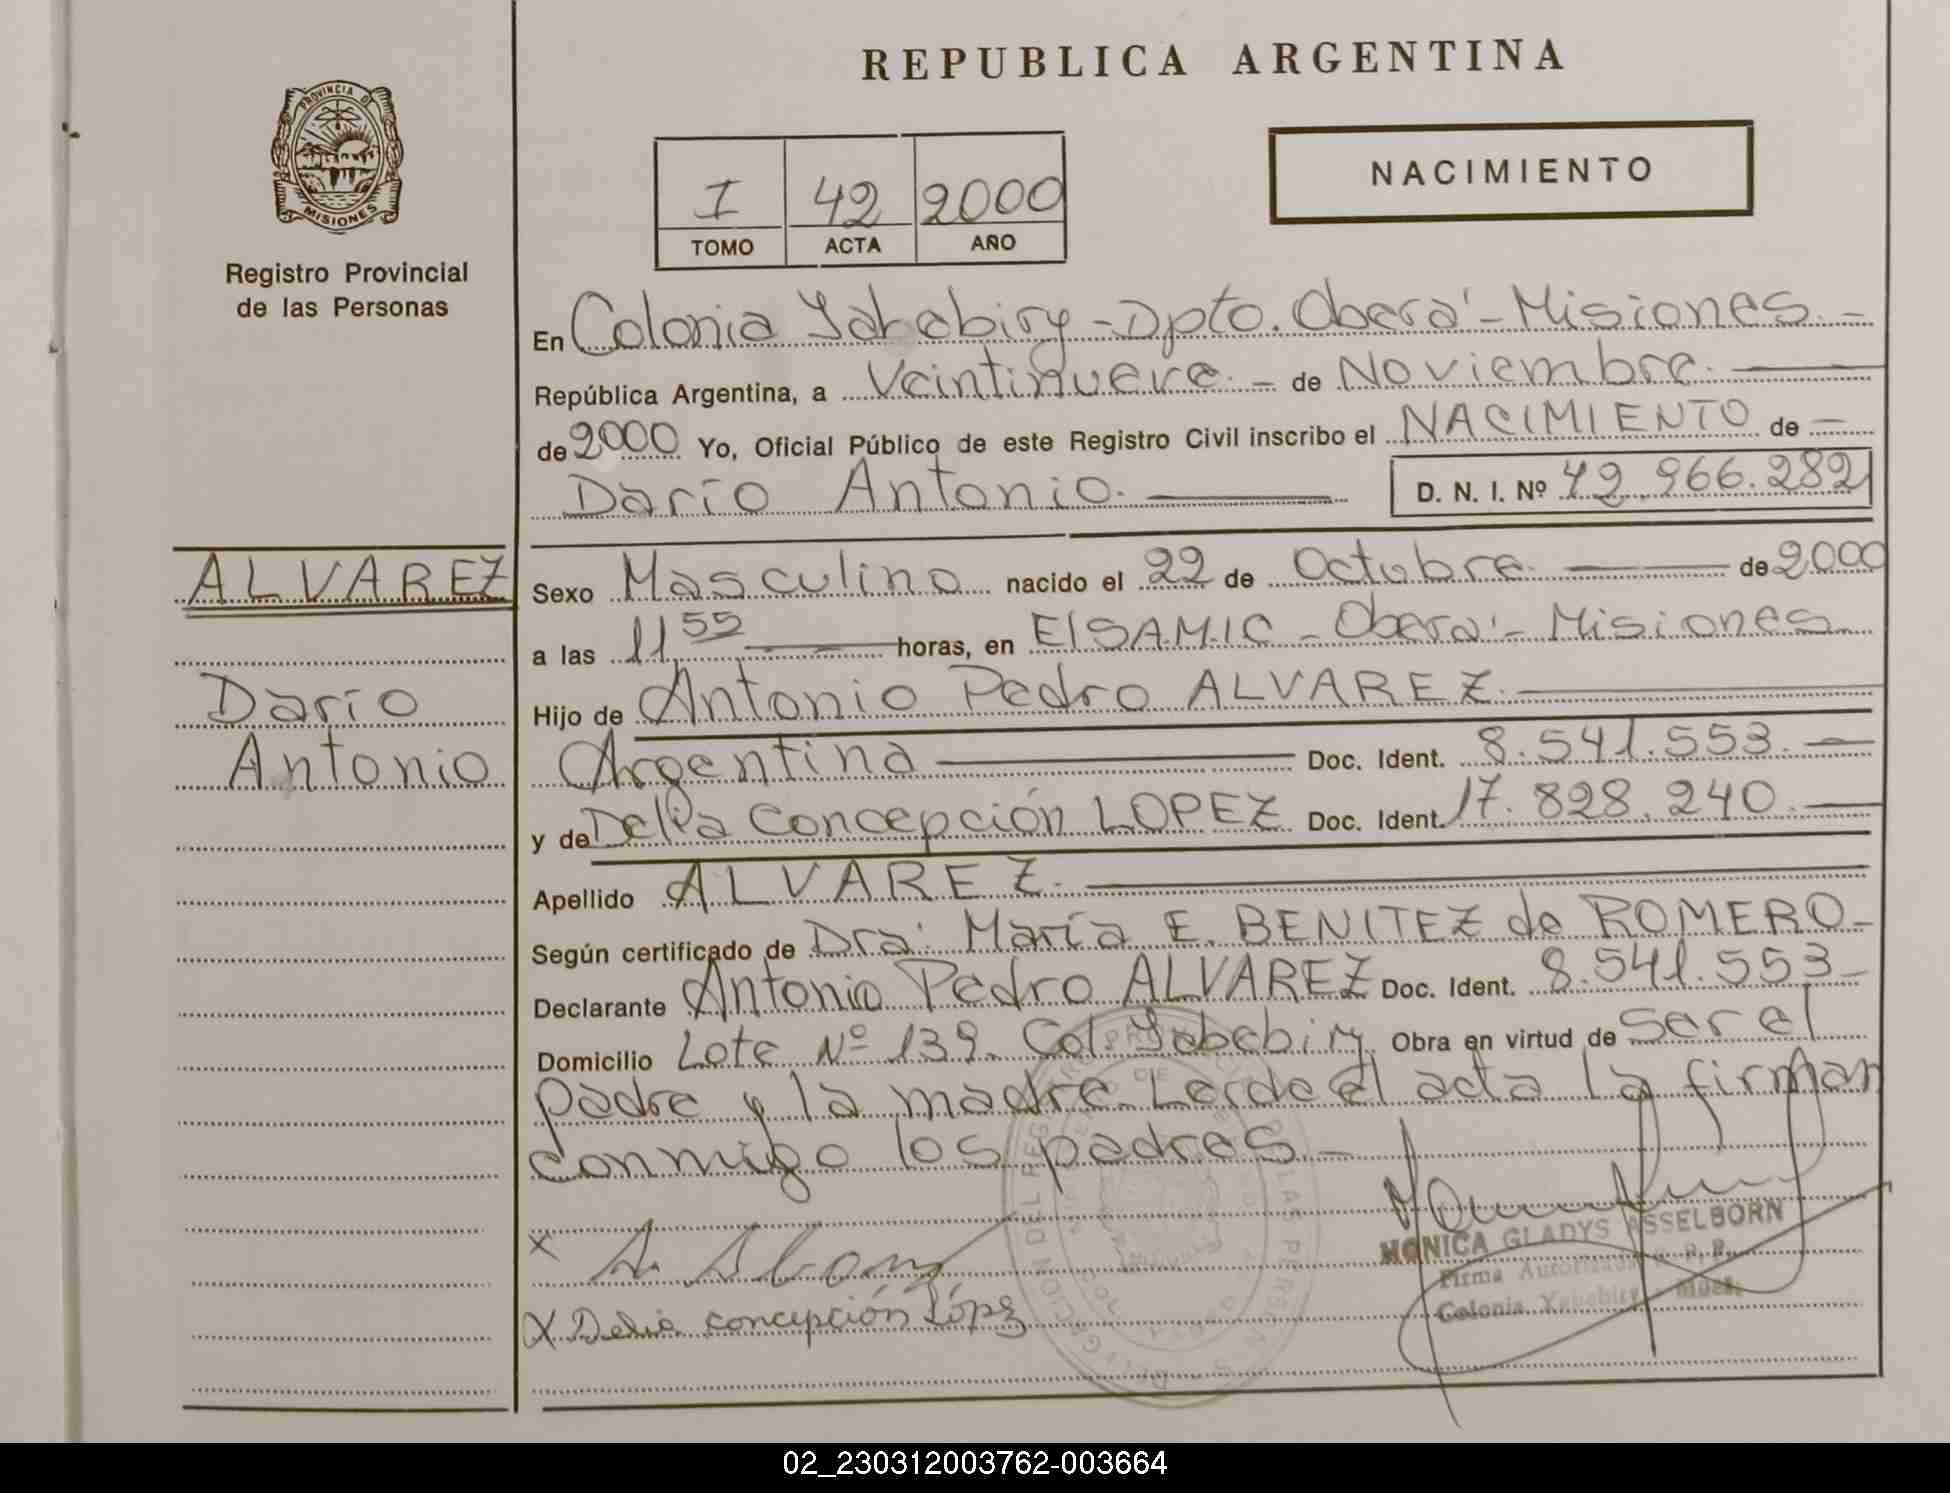 REPUBLICA ARGENTINA
PROVINCIA DE
MISIONES
Registro Provincial
de las Personas
I 42 2000
TOMO ACTA AÑO
NACIMIENTO
En Colonia Yabebiry - Dpto. Oberá - Misiones. -
República Argentina, a Veintinueve. - de Noviembre.
de 2000 Yo, Oficial Público de este Registro Civil inscribo el NACIMIENTO de -
Darío Antonio. D. N. I. Nº 42.966.282
ALVAREZ
Darío
Antonio
Sexo Masculino nacido el 22 de Octubre de 2000
a las 11 55 horas, en El SAMIC - Oberá - Misiones
Hijo de Antonio Pedro ALVAREZ.
Argentina Doc. Ident. 8.541.553. -
y de Delia Concepción LOPEZ Doc. Ident. 17.828.240. -
Apellido ALVAREZ.
Según certificado de Dra. María E. BENITEZ de ROMERO -
Declarante Antonio Pedro ALVAREZ Doc. Ident. 8.541.553 -
Domicilio Lote Nº 139. Col. Yabebiry Obra en virtud de ser el
padre y la madre. Leída el acta la firman
conmigo los padres. -
MONICA GLADYS ASSELBORN
Firma Autorizada
Colonia Yabebiry - Mnes.
X
X Delia concepción López
02_230312003762-003664